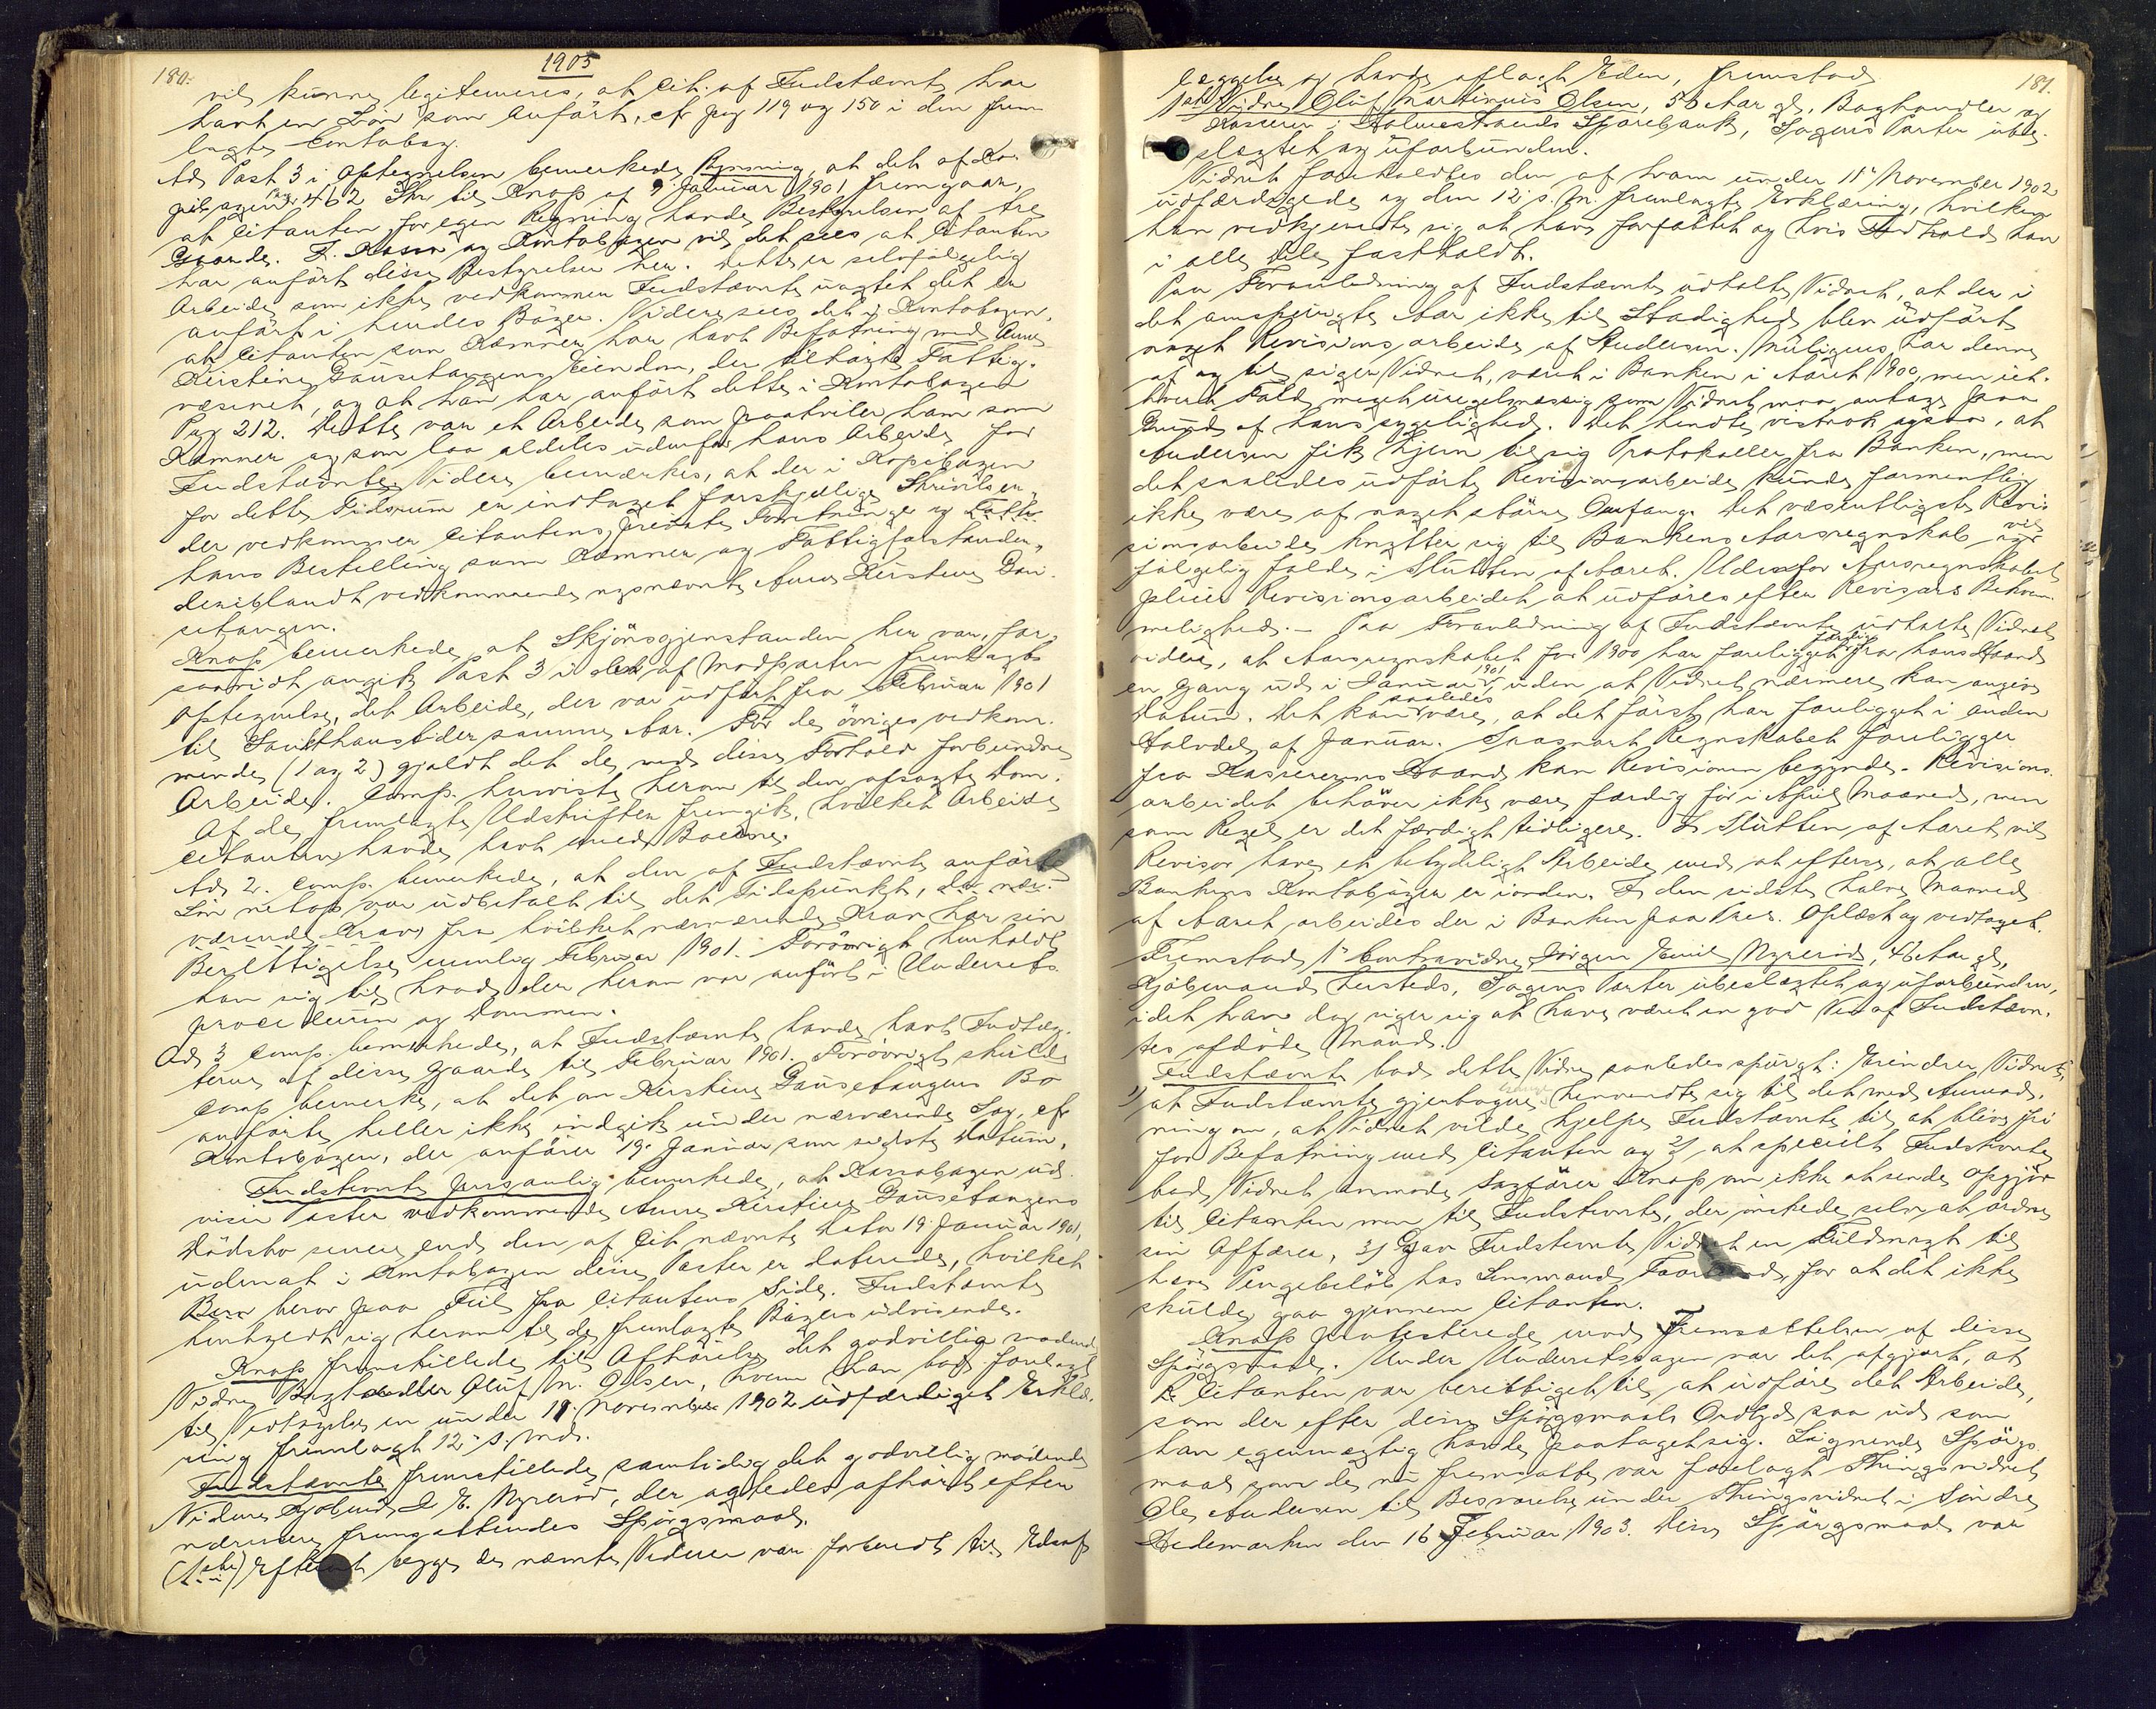 180.
1903
vil kunne legitimeres, at Cit. af Indstævnte har
havt en Lön som anfört, cf pag 119 og 150 i den frem
lagte Contobog.
Ad Post 3 i Optegnelsen bemerkede Rynning, at det af Ko-
pibogen pag 462 Skr til Knap af 9. Januar 1901 fremgaar,
at Citanten for egen Regning havde Bestyrelsen af tre
Gaarde. I Kassa og Kontobogen vil det sees at Citanten
har anfört disse Bestyrelser her. Dette er selvfölgelig
Arbeide som ikke vedkommer Indstævnte uagtet det er
anfört i hendes Böger. Videre sees det i Kontobogen,
at Citanten som Kæmner har havt Befatning med Anne
Kirstine Gausetangens Eiendom, der tilhörte Fattig-
væsenet, og at han har anfört dette i Kontobogen
Pag 212. Dette var et Arbeide som paahviler ham som
Kæmner og som laa aldeles udenfor hans Arbeide for
Indstævnte. Videre bemærkes, at der i Kopibogen
for dette Tidsrum er indtaget forskjellige Skrivelser
der vedkommer Citantens private Forretninger og
hans Bestilling som Kæmner og Fattigforstander,
deriblandt vedkommende nysnævnte Anne Kirstine Gau-
setangen.
Knap bemerkede at Skjönsgjenstanden her var, for-
saavidt angik Post 3 i det af Modparten fremlagte
Optegnelse, det Arbeide, der var udfört fra Februar 1901
til Sankthanstider samme Aar. For de övriges vedkom-
mende (1 og 2) gjaldt det de med disse Forhold forbundne
Arbeider. Comp. henviste herom til den afsagte Dom.
Af de fremlagte Udskrifter fremgik, hvilket Arbeide
Citanten havde havt med Boerne.
Ad 2. Comp. bemerkede, at den af Indstævnte anförte
Lön netop var udbetalt til det Tidspunkt, da nær-
værende Krav fra hvilket nærværende Krav har sin
Berettigelse nemlig Februar 1901. Forövrigt henholdt
han sig til hvad der herom var anfört i Underrets-
proceduren og Dommen.
Ad 3 Comp. bemerkede, at Indstævnte havde havt Indtæg-
terne af disse Gaarde til Februar 1901. Forövrigt skulde
Comp bemerke, at det om Kirstine Gausetangens Bo
anförte heller ikke indgik under nærværende Sag, cfr
Kontobogen, der anförer 19. Januar som sidste Datum.
Indstævnte personlig bemerkede, at Kassabogen ud-
viser Poster vedkommende Anne Kirstine Gausetangens
Dödsbo senere end den af Cit nævnte Dato 19. Januar 1901,
udenat i Kontobogen disse Poster er daterede, hvilket
Beror herav paa Feil fra Citantens Side. Indstævnte
henholdt sig herom til de fremlagte Bögers udvisende.
Knap fremstillede til Afhörelse det godvillig mödende
Vidne Boghandler Oluf M. Olsen, hvem han bad forelagt
til Vedtagelse en under 11. November 1902 udfærdiget Erklæ-
ring fremlagt 12 s. Md.
Indstævnte fremstillede samtidig det godvillig mödende
Vidne Kjöbmd J. E. Nyreröd, der agtedes afhört efter
nærmere fremsættendes Spörgsmaal.
Efterat begge de nævnte Vidner var forberedt til Edsaf-
181.
læggelse og havde aflagt Eden, fremstod
1ste Vidne Oluf Martinius Olsen, 56 Aar gl. Boghandler og
Kasserer i Holmestrands Sparebank, Sagens Parter ube-
slegtet og uforbunden.
Vidnet foreholdtes den af ham under 11te November 1902
udfærdigede og den 12 s. M. fremlagte Erklæring, hvilken
han vedkjendte sig at have forfattet og hvis Indhold han
i alle Dele fastholdt.
Paa Foranledning af Indstævnte udtalte Vidnet, at der i
det omspurgte Aar ikke til Stadighed blev udfört
noget Revisionsarbeide af Andersen. Muligens har denne
af og til siger Vidnet, været i Banken i Aaret 1900, men iet-
hvert Fald meget uregelmæssig som Vidnet maa antage paa
Grund af hans sygelighed. Det hendte vistnok ogsaa, at
Andersen fik hjem til sig Protokoller fra Banken, men
det saaledes udförte Revisionsarbeide kunde formentlig
ikke være af noget större Omfang. Det væsentligste Revi-
sionsarbeide knytter sig til Bankens Aarsregnskab og vil
fölgelig falde i Slutten af Aaret. Udenfor Aarsregnskabet
pleier Revisionsarbeidet at udföres efter Revisors Bekvem-
melighed. – Paa Foranledning af Indstævnte udtalte Vidnet
videre, at Aarsregnskabet for 1900 har foreligget færdig fra hans Haand
en Gang ud i Januar 1901, uden at Vidnet nærmere kan angive
Datum. Det kan saaledes være, at det först har foreligget i anden
Halvdel af Januar. Saasnart Regnskabet foreligger
fra Kassererens Haand kan Revisionen begynde. Revisions-
arbeidet behöver ikke være færdig för i April Maaned, men
som Regel er det færdigt tidligere. I Slutten af Aaret vil
Revisor have et betydeligt Arbeide med at efterse, at alle
Bankens Kontoböger er iorden. I den sidste halve Maaned
af Aaret arbeides der i Banken paa Pres. Oplæst og vedtaget.
Fremstod 1ste Contravidne Jörgen Emil Nyreröd, 46 Aar gl,
Kjöbmand hersteds, Sagens Parter ubeslægtet og uforbunden,
idet han dog siger sig at have været en god Ven af Indstævn-
tes afdöde Mand.
Indstævnte bad dette Vidne saaledes spurgt: Erindrer Vidnet,
1) at Indstævnte gjentagne Gange henvendte sig til det med Anmod-
ning om, at Vidnet vilde hjelpe Indstævnte til at blive fri
for Befatning med Citanten og 2) at specielt Indstævnte
bad Vidnet anmode Sagförer Knap om ikke at sende Opgjör
til Citanten men til Indstævnte, der önskede selv at ordne
sin Affærer, 3) Gav Indstævnte Vidnet en Fuldmagt til
hæve Pengebelöb hos Lensmand, for at det ikke
skulde gaa gjennem Citanten.
Knap protesterede mod Fremsættelsen af disse
Spörgsmaal. Under Underretssagen var det afgjort, at
Citanten var berettiget til at udföre det Arbeide,
som der efter disse Spörgsmaals Ordlyd saa ud som
han egenmægtig havde paataget sig. Lignende Spörgs-
maal som de nu fremsatte var forelagt Thingsvidnet
Ole Andersen til Besvarelse under Thingsvidnet i Söndre
Hedemarken den 16 Februar 1903. Disse Spörgsmaal var